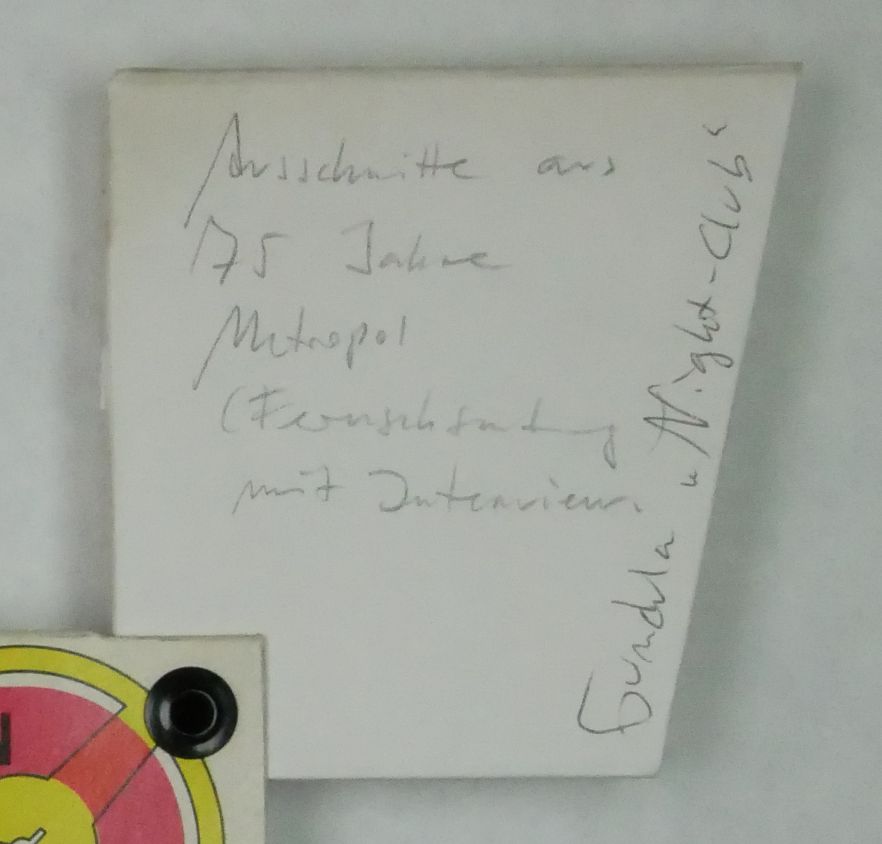 Ausschnitte aus
75 Jahre
Metropol
(Fernsehsendung
mit Interview.
Gundula „Night-Club“